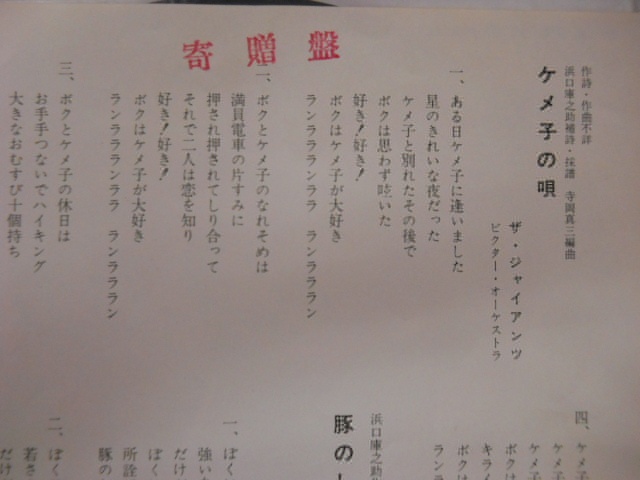 寄贈盤
作詩・作曲不詳
浜口庫之助補詩・採譜 寺岡真三編曲
ケメ子の唄
ザ・ジャイアンツ
ビクター・オーケストラ
一、ある日ケメ子に逢いました
星のきれいな夜だった
ケメ子と別れたその後で
ボクは思わず呟いた
好き!好き!
ボクはケメ子が大好き
ランラララランララ ランラララン
二、ボクとケメ子のなれそめは
満員電車の片すみに
押され押されてしり合って
それで二人は恋を知り
好き!好き!
ボクはケメ子が大好き
ランラララランララ ランラララン
三、ボクとケメ子の休日は
お手手つないでハイキング
大きなおむすび十個持ち
四、ケメ
ケメ子
ケメ子
ボクは
キラ
ボクは
ラン
浜口庫之助
豚の
一、ぼく
強い
だけ
ぼく
所詮
豚の
二、ぼく
若さ
だけ